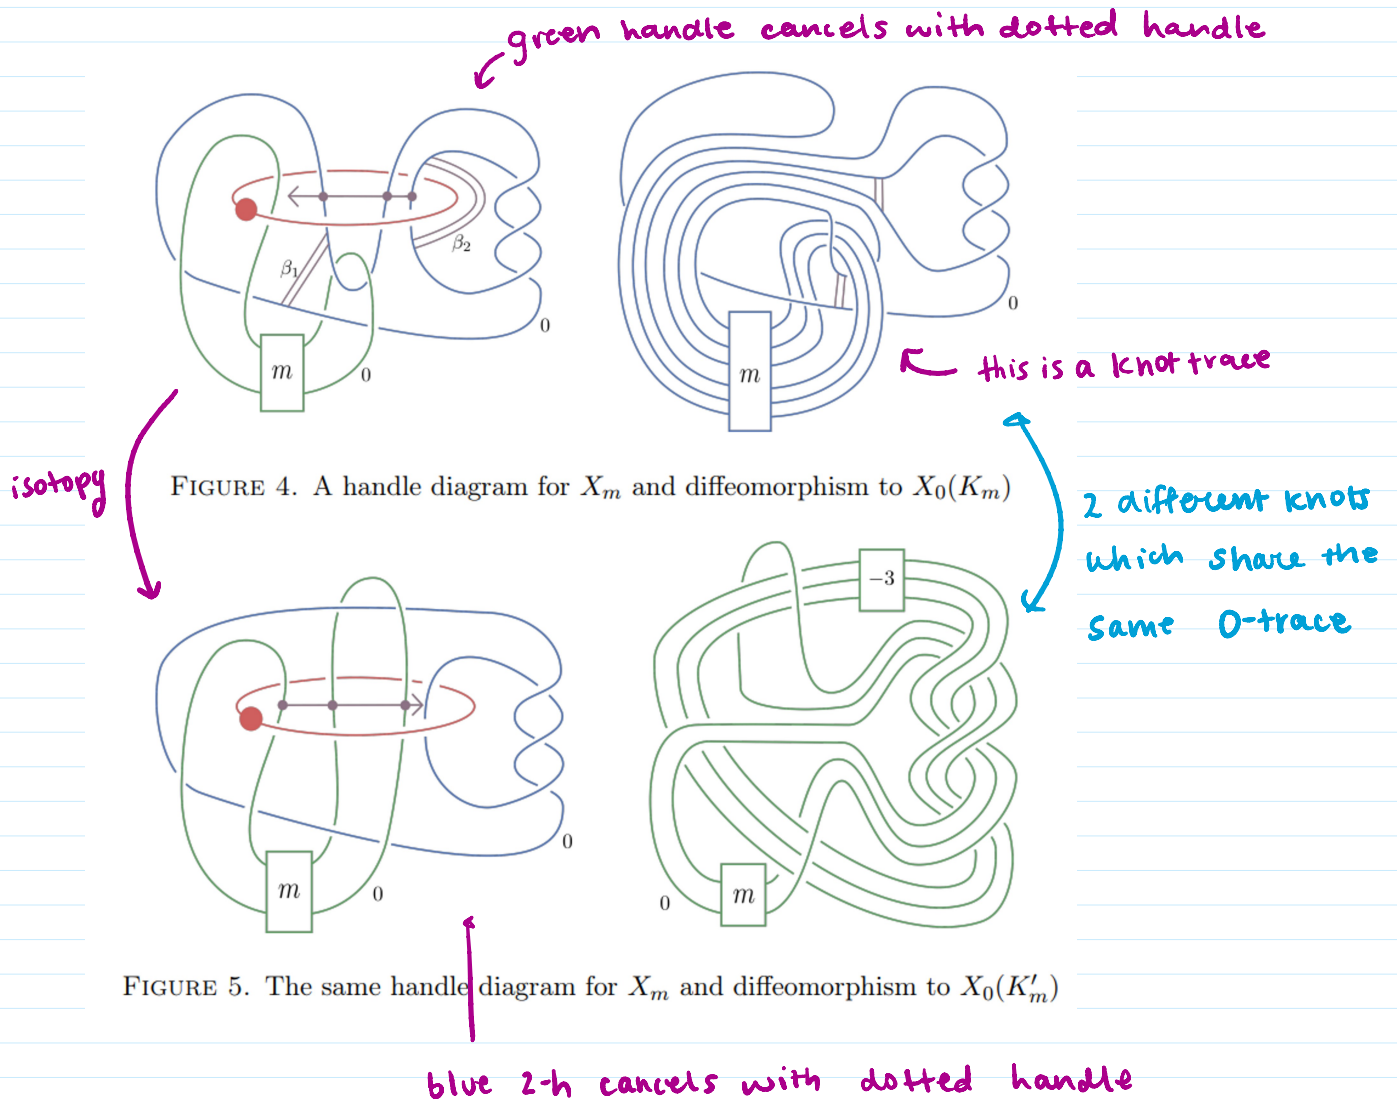 green handle cancels with dotted handle
β₁
β₂
0
m
0
m
0
this is a knot trace
isotopy
FIGURE 4. A handle diagram for Xₘ and diffeomorphism to X₀(Kₘ)
2 different knots
which share the
same 0-trace
-3
m
0
0
m
0
FIGURE 5. The same handle diagram for Xₘ and diffeomorphism to X₀(K′ₘ)
blue 2-h cancels with dotted handle